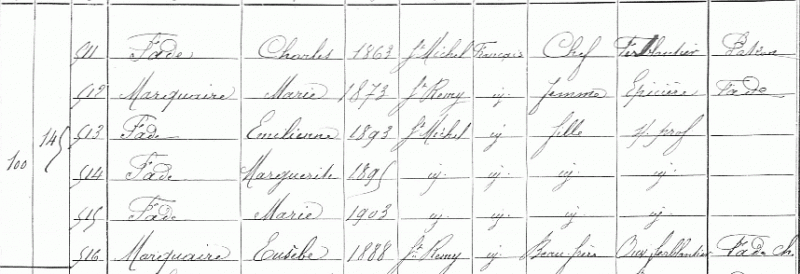 511 Fade Charles 1863 St Michel Français Chef Ferblantier Patron
512 Marquaire Marie 1873 St Remy ij femme Epicière Fade
100 145 513 Fade Emilienne 1893 St Michel ij fille s. prof
514 Fade Marguerite 1895 ij ij ij ij
515 Fade Marie 1903 ij ij ij ij
516 Marquaire Eusèbe 1888 St Remy ij Beau frère Ouv ferblantier Fade Ch